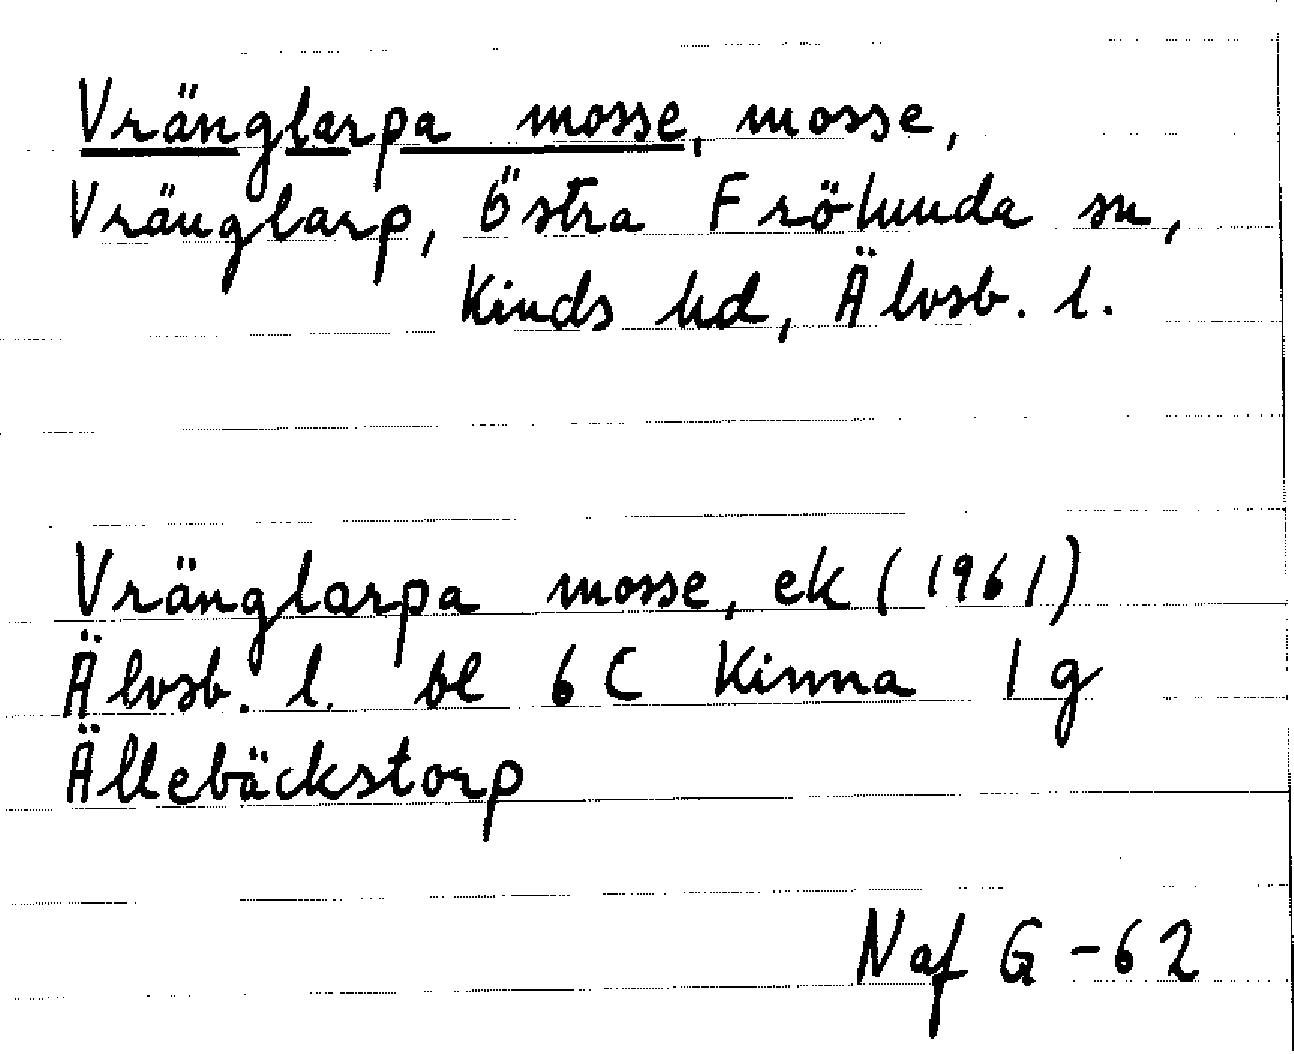 Vränglarpa mosse, mosse,
Vränglarp, Östra Frölunda sn,
Kinds hd, Älvsb. l.
Vränglarpa mosse, ek (1961)
Älvsb. l. bl 6 C Kinna 1 g
Ällebäckstorp
Naf G -62